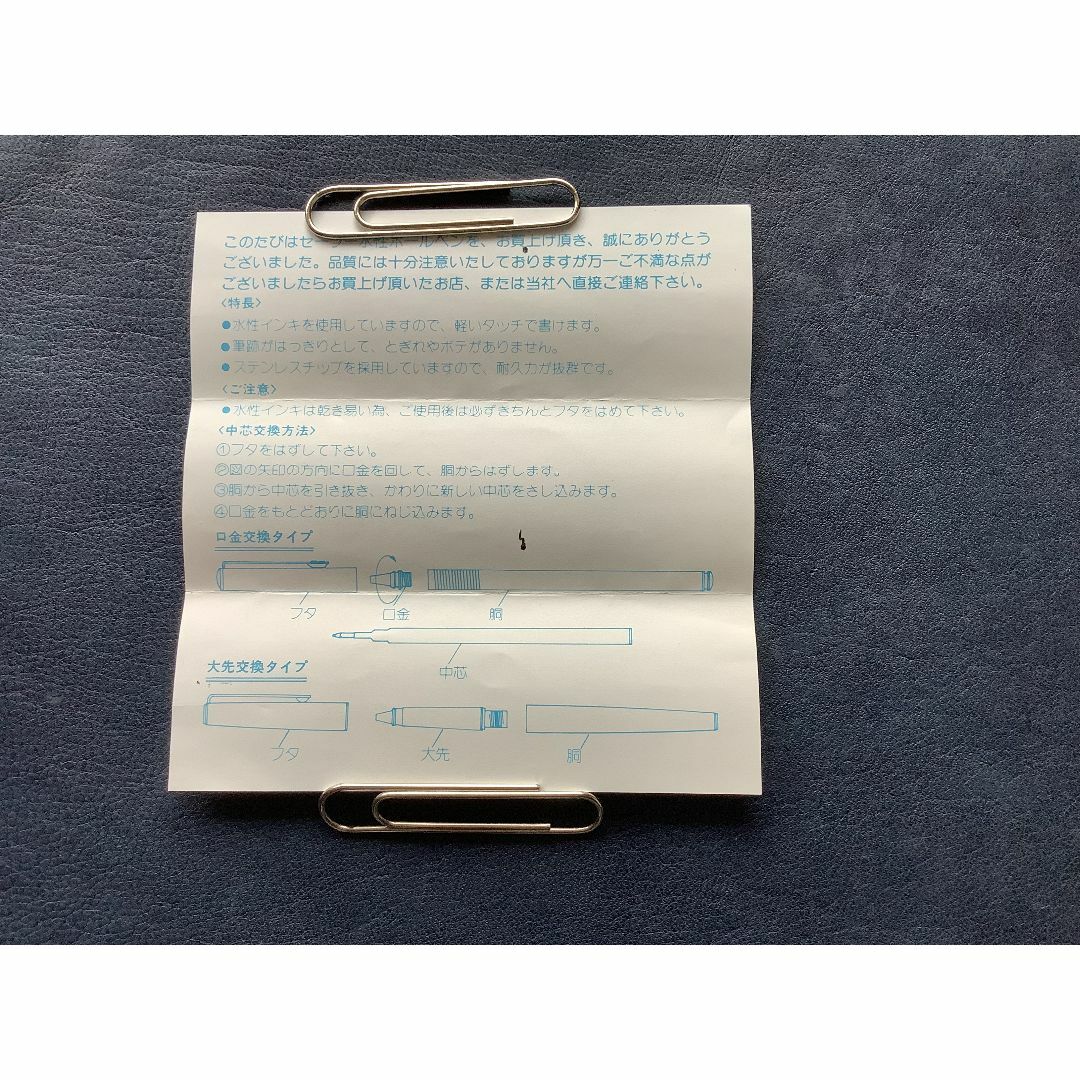 このたびはセーラー水性ボールペンを、お買上げ頂き、誠にありがとう
ございました。品質には十分注意いたしておりますが万一ご不満な点が
ございましたらお買上げ頂いたお店、または当社へ直接ご連絡下さい。
〈特長〉
●水性インキを使用していますので、軽いタッチで書けます。
●筆跡がはっきりとして、とぎれやボテがありません。
●ステンレスチップを採用していますので、耐久力が抜群です。
〈ご注意〉
●水性インキは乾き易い為、ご使用後は必ずきちんとフタをはめて下さい。
〈中芯交換方法〉
①フタをはずして下さい。
②図の矢印の方向に口金を回して、胴からはずします。
③胴から中芯を引き抜き、かわりに新しい中芯をさし込みます。
④口金をもとどおりに胴にねじ込みます。
口金交換タイプ
フタ 口金 胴
中芯
大先交換タイプ
フタ 大先 胴